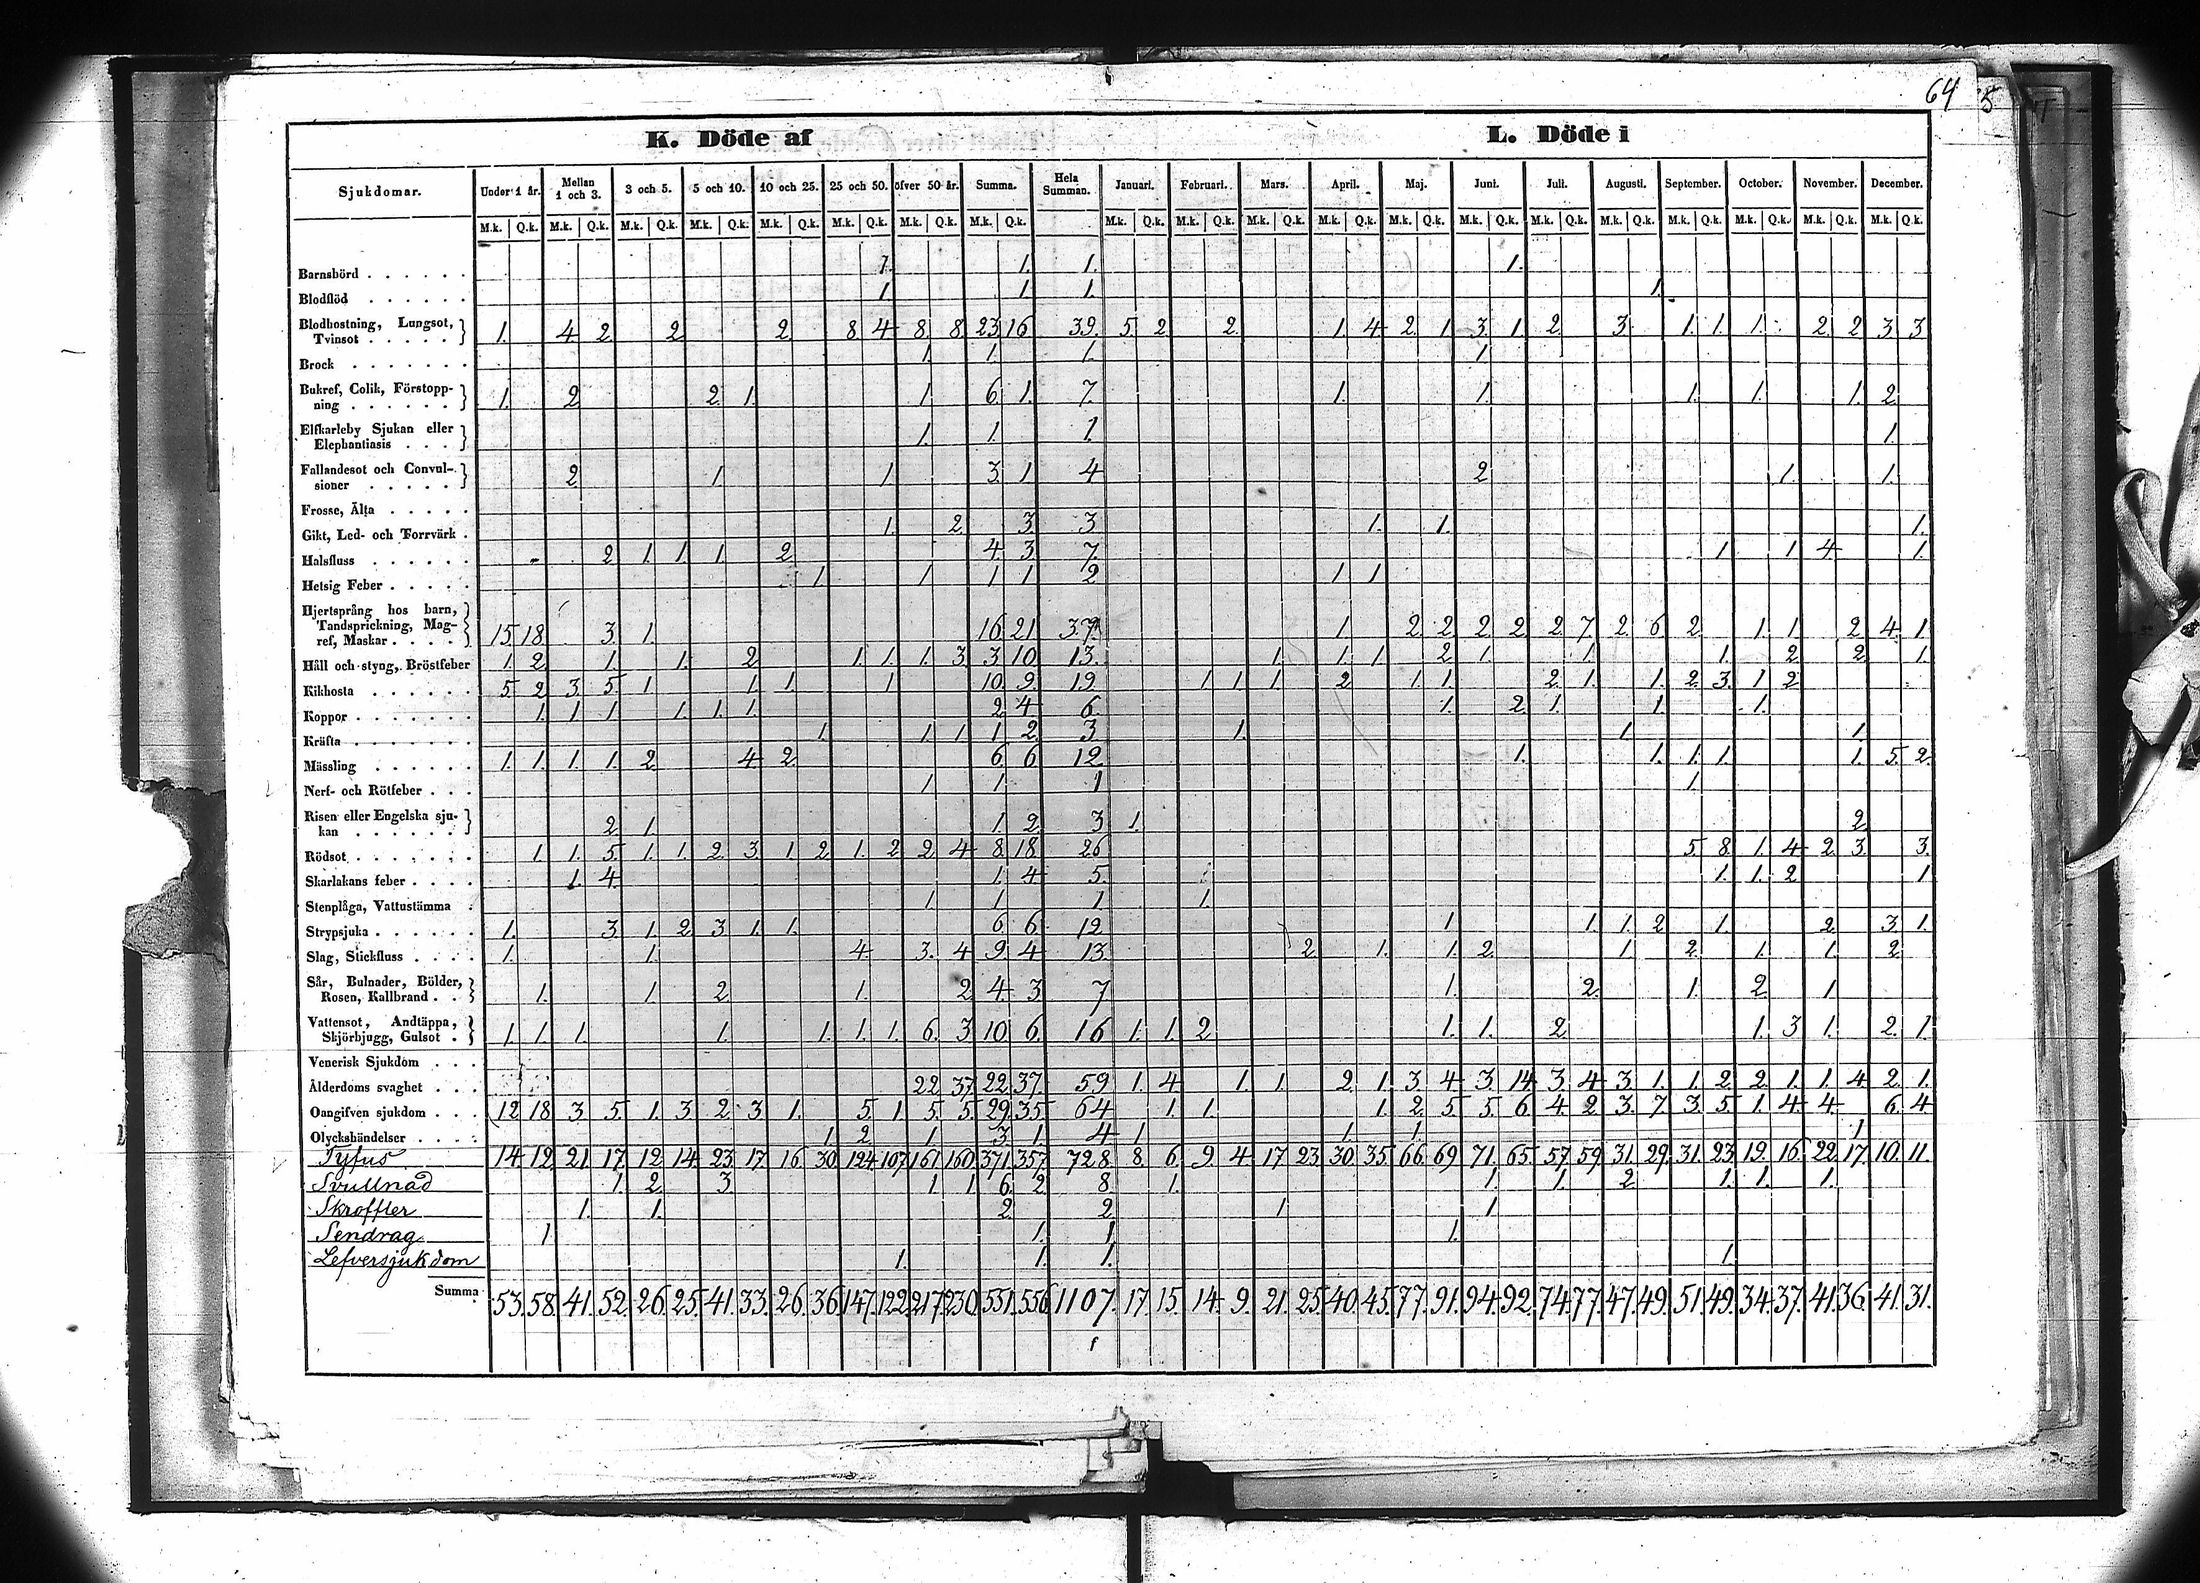 64
5
K. Döde af L. Döde i
Sjukdomar. Under 1 år. Mellan 1 och 3. 3 och 5. 5 och 10. 10 och 25. 25 och 50. öfver 50 år. Summa. Hela Summan. Januari. Februari. Mars. April. Maj. Juni. Juli. Augusti. September. October. November. December.
M.k. Q.k. M.k. Q.k. M.k. Q.k. M.k. Q.k. M.k. Q.k. M.k. Q.k. M.k. Q.k. M.k. Q.k. M.k. Q.k. M.k. Q.k. M.k. Q.k. M.k. Q.k. M.k. Q.k. M.k. Q.k. M.k. Q.k. M.k. Q.k. M.k. Q.k. M.k. Q.k. M.k. Q.k. M.k. Q.k.
Barnsbörd 1. 1. 1. 1.
Blodflöd 1 1. 1. 1.
Blodhostning, Lungsot,
Tvinsot 1. 4 2 2 2. 8 4 8. 8. 23 16 39. 5. 2. 2. 1 4 2. 1 3. 1. 2. 3. 1. 1. 1. 2. 2 3 3
Brock 1. 1. 1. 1.
Bukref, Colik, Förstopp-
ning 1. 2 2. 1. 1. 6. 1. 7. 1. 1. 1. 1. 1. 2.
Elfkarleby Sjukan eller
Elephantiasis 1. 1. 1. 1.
Fallandesot och Convul-
sioner 2. 1 1 3. 1 4 2 1. 1.
Frosse, Älta
Gikt, Led- och Torrvärk 1. 2. 3 3 1. 1. 1.
Halsfluss 2 1. 1. 1. 2. 4. 3. 7. 1. 1 4 1.
Hetsig Feber 1 1 1 1 2 1 1
Hjertsprång hos barn,
Tandsprickning, Mag-
ref, Maskar 15 18 3. 1. 16 21 37. 1. 2 2 2 2 2 7 2. 6 2 1 1 2 4 1
Håll och styng, Bröstfeber 1. 2. 1. 1. 2 1. 1. 1. 3. 3 10. 13. 1. 1. 1 2 1. 1. 1. 2 2. 1.
Kikhosta 5 2 3. 5. 1 1. 1. 1 10. 9. 19. 1 1. 1. 2 1. 1. 2. 1. 1. 2. 3. 1 2
Koppor 1. 1. 1 1. 1. 1. 2. 4. 6. 1. 2. 1. 1. 1.
Kräfta 1. 1. 1 1 2. 3 1. 1. 1.
Mässling 1. 1. 1. 1. 2 4 2. 6. 6 12 1. 1. 1. 1. 1. 5. 2.
Nerf- och Rötfeber 1 1. 1 1.
Risen eller Engelska sju-
kan 2. 1. 1. 2. 3 1. 2
Rödsot 1 1. 5. 1. 1. 2 3. 1. 2 1. 2 2 4 8. 18. 26 5. 8. 1. 4 2. 3. 3.
Skarlakans feber 1. 4. 1. 4 5. 1. 1. 2 1
Stenplåga, Vattustämma 1 1 1 1.
Strypsjuka 1. 3. 1. 2. 3 1. 1. 6. 6 12 1. 1. 1. 2 1. 2. 3. 1.
Slag, Stickfluss 1. 1. 4. 3. 4 9. 4 13. 2. 1. 1. 2. 1 2. 1. 1. 2
Sår, Bulnader, Bölder,
Rosen, Kallbrand 1. 1 2 1. 2. 4. 3 7 1. 2. 1. 2. 1
Vattensot, Andtäppa,
Skjörbjugg, Gulsot 1. 1. 1. 1. 1. 1. 1. 6. 3 10. 6. 16 1. 1. 2 1. 1. 2 1. 3 1. 2. 1.
Venerisk Sjukdom
Ålderdoms svaghet 22 37. 22. 37. 59 1. 4 1. 1. 2 1. 3 4 3. 14 3. 4 3. 1. 1. 2 2. 1. 1. 4 2. 1.
Oangifven sjukdom 12 18 3 5. 1. 3 2. 3 1. 5. 1. 5. 5. 29. 35 64 1. 1. 1. 2. 5. 5. 6. 4 2 3. 7 3. 5. 1. 4 4. 6. 4
Olyckshändelser 1 2. 1 3. 1. 4 1 1. 1 1
Tyfus 14 12 21. 17. 12. 14 23. 17. 16. 30. 124. 107 161. 160. 371. 357 728 8. 6. 9. 4 17 23. 30. 35. 66. 69 71. 65. 57. 59 31. 29. 31. 23. 19. 16. 22. 17. 10. 11.
Svullnad 1. 2. 3 1 1. 6. 2. 8 1. 1. 1. 2 1. 1. 1.
Skroffler 1. 1. 2 2 1 1
Sendrag 1 1. 1 1.
Lefversjukdom 1. 1. 1. 1.
Summa 53. 58. 41. 52. 26. 25. 41. 33. 26. 36. 147. 122. 217. 230. 551. 556 1107. 17. 15. 14. 9. 21. 25. 40. 45. 77. 91. 94. 92. 74. 77. 47. 49. 51. 49. 34. 37. 41. 36. 41. 31.